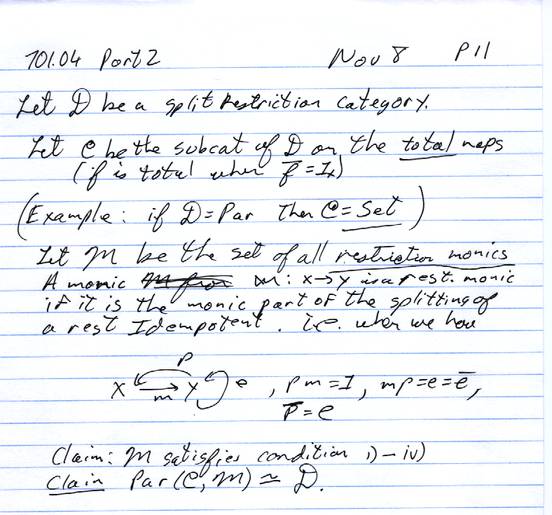 701.04 Part 2 Nov 8 P11
Let D be a split Restriction category.
Let C be the subcat of D on the total maps
(f is total when f̄ = 1x)
(Example: if D = Par Then C = Set)
Let M be the set of all restriction monics
A monic m: x → y is a rest. monic
if it is the monic part of the splitting of
a rest Idempotent. i.e. when we have
p
x → y e , pm = 1, mp = e = ē,
m p̄ = e
Claim: M satisfies condition i) – iv)
Claim Par(C, M) ≃ D.